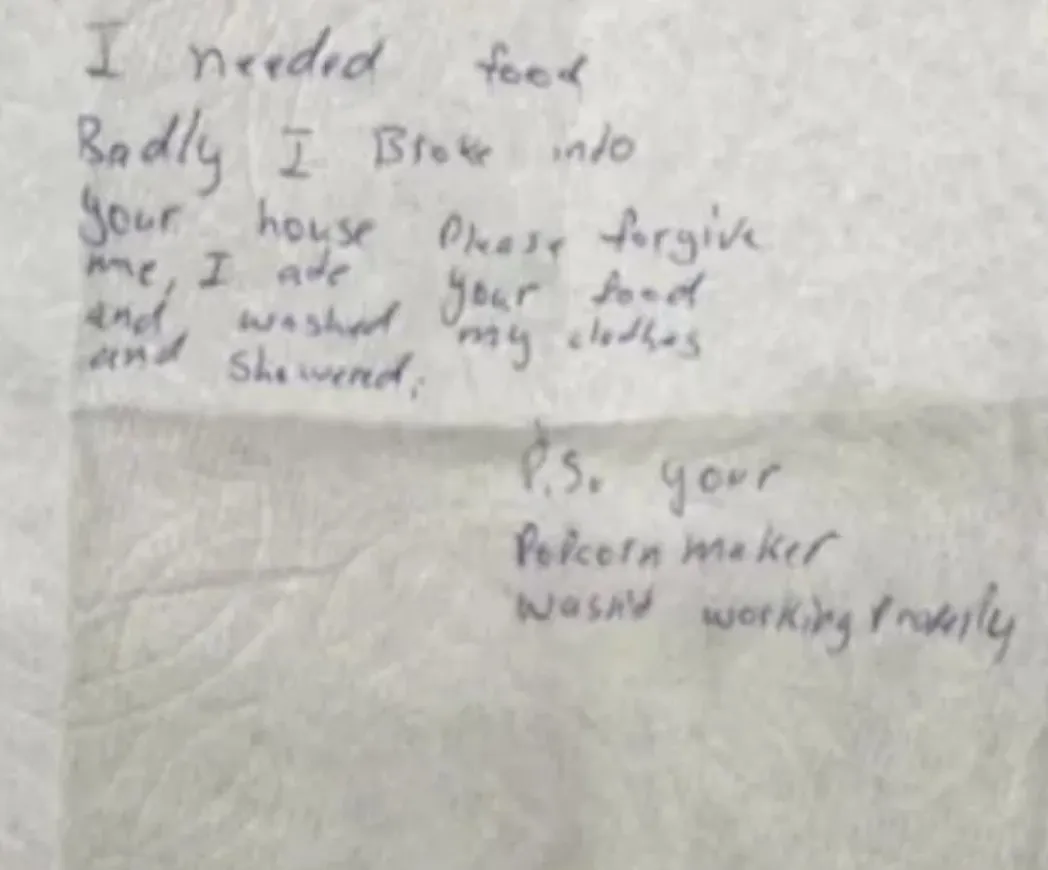 I needed food
Badly I Broke into
your house Please forgive
me, I ate your food
and washed my clothes
and showered.
P.S. your
Popcorn maker
wasn't working Properly